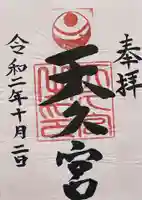 奉拝
天久宮
令和二年十月二日